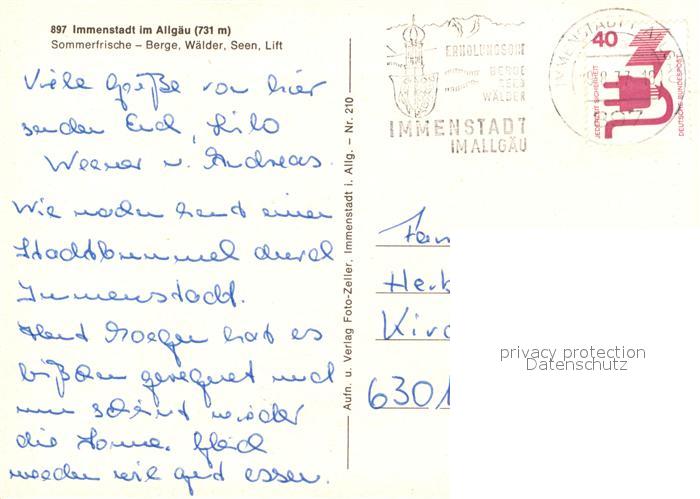 897 Immenstadt im Allgäu (731 m)
Sommerfrische – Berge, Wälder, Seen, Lift
Viele Grüße von hier
senden Euch, Lilo
Werner u. Andreas.
Wir machen heut einen
Stadtbummel durch
Immenstadt.
Heut Morgen hat es
bißchen geregnet und
nun scheint wieder
die Sonne. Gleich
werden wir gut essen.
Aufn. u. Verlag Foto-Zeller, Immenstadt i. Allg. – Nr. 210
ERHOLUNGSORT
BERGE
SEES
WÄLDER
IMMENSTADT
IM ALLGÄU
IMMENSTADT
40
JEDERZEIT SICHERHEIT
DEUTSCHE BUNDESPOST
Fam
Herb
Kirc
6301
privacy protection
Datenschutz